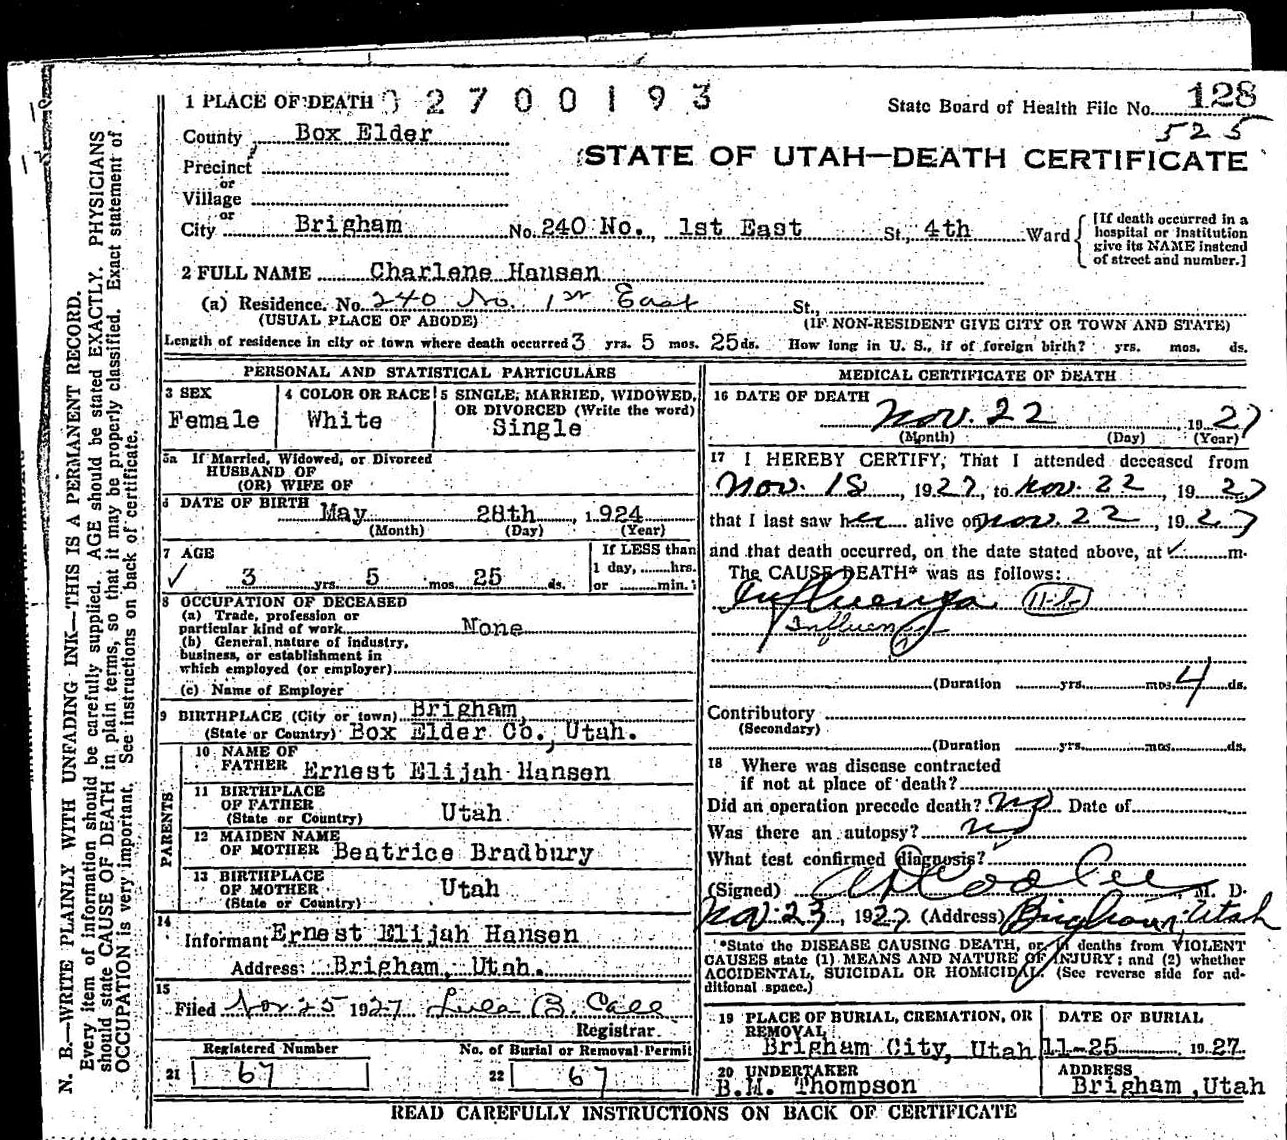 1 PLACE OF DEATH 0 2 7 0 0 1 9 3
State Board of Health File No. 128
525
County Box Elder
STATE OF UTAH—DEATH CERTIFICATE
Precinct
or
Village
or
City Brigham No. 240 No., 1st East St., 4th Ward
[If death occurred in a
hospital or institution
give its NAME instead
of street and number.]
2 FULL NAME Charlene Hansen
(a) Residence. No. 240 No. 1st East St.,
(USUAL PLACE OF ABODE) (IF NON-RESIDENT GIVE CITY OR TOWN AND STATE)
Length of residence in city or town where death occurred 3 yrs. 5 mos. 25 ds. How long in U. S., if of foreign birth? yrs. mos. ds.
PERSONAL AND STATISTICAL PARTICULARS
3 SEX
Female
4 COLOR OR RACE
White
5 SINGLE, MARRIED, WIDOWED,
OR DIVORCED (Write the word)
Single
5a If Married, Widowed, or Divorced
HUSBAND OF
(OR) WIFE OF
6 DATE OF BIRTH May 28th, 1924
(Month) (Day) (Year)
7 AGE
✓ 3 yrs. 5 mos. 25 ds.
If LESS than
1 day, hrs.
or min.
8 OCCUPATION OF DECEASED
(a) Trade, profession or
particular kind of work None
(b) General nature of industry,
business, or establishment in
which employed (or employer)
(c) Name of Employer
9 BIRTHPLACE (City or town) Brigham,
(State or Country) Box Elder Co., Utah.
PARENTS
10 NAME OF
FATHER Ernest Elijah Hansen
11 BIRTHPLACE
OF FATHER
(State or Country) Utah
12 MAIDEN NAME
OF MOTHER Beatrice Bradbury
13 BIRTHPLACE
OF MOTHER
(State or Country) Utah
14
Informant Ernest Elijah Hansen
Address: Brigham, Utah.
15
Filed Nov 25 1927 Lula B. Call
Registrar.
Registered Number No. of Burial or Removal Permit
21 67 22 67
MEDICAL CERTIFICATE OF DEATH
16 DATE OF DEATH
Nov. 22 1927
(Month) (Day) (Year)
17 I HEREBY CERTIFY, That I attended deceased from
Nov. 18, 1927, to Nov. 22, 1927
that I last saw her alive on Nov. 22, 1927
and that death occurred, on the date stated above, at ✓ m.
The CAUSE DEATH* was as follows:
Influenza
Influenza
(Duration yrs. mos. 4 ds.
Contributory
(Secondary)
(Duration yrs. mos. ds.
18 Where was disease contracted
if not at place of death?
Did an operation precede death? no Date of
Was there an autopsy? no
What test confirmed diagnosis?
(Signed) M. D.
Nov 23, 1927 (Address) Brigham, Utah
*State the DISEASE CAUSING DEATH, or in deaths from VIOLENT
CAUSES state (1) MEANS AND NATURE OF INJURY; and (2) whether
ACCIDENTAL, SUICIDAL OR HOMICIDAL. (See reverse side for ad-
ditional space.)
19 PLACE OF BURIAL, CREMATION, OR
REMOVAL
Brigham City, Utah
DATE OF BURIAL
11-25 1927.
20 UNDERTAKER
B.H. Thompson
ADDRESS
Brigham, Utah
READ CAREFULLY INSTRUCTIONS ON BACK OF CERTIFICATE
N. B.—WRITE PLAINLY WITH UNFADING INK—THIS IS A PERMANENT RECORD.
Every item of information should be carefully supplied. AGE should be stated EXACTLY. PHYSICIANS
should state CAUSE OF DEATH in plain terms, so that it may be properly classified. Exact statement of
OCCUPATION is very important. See instructions on back of certificate.